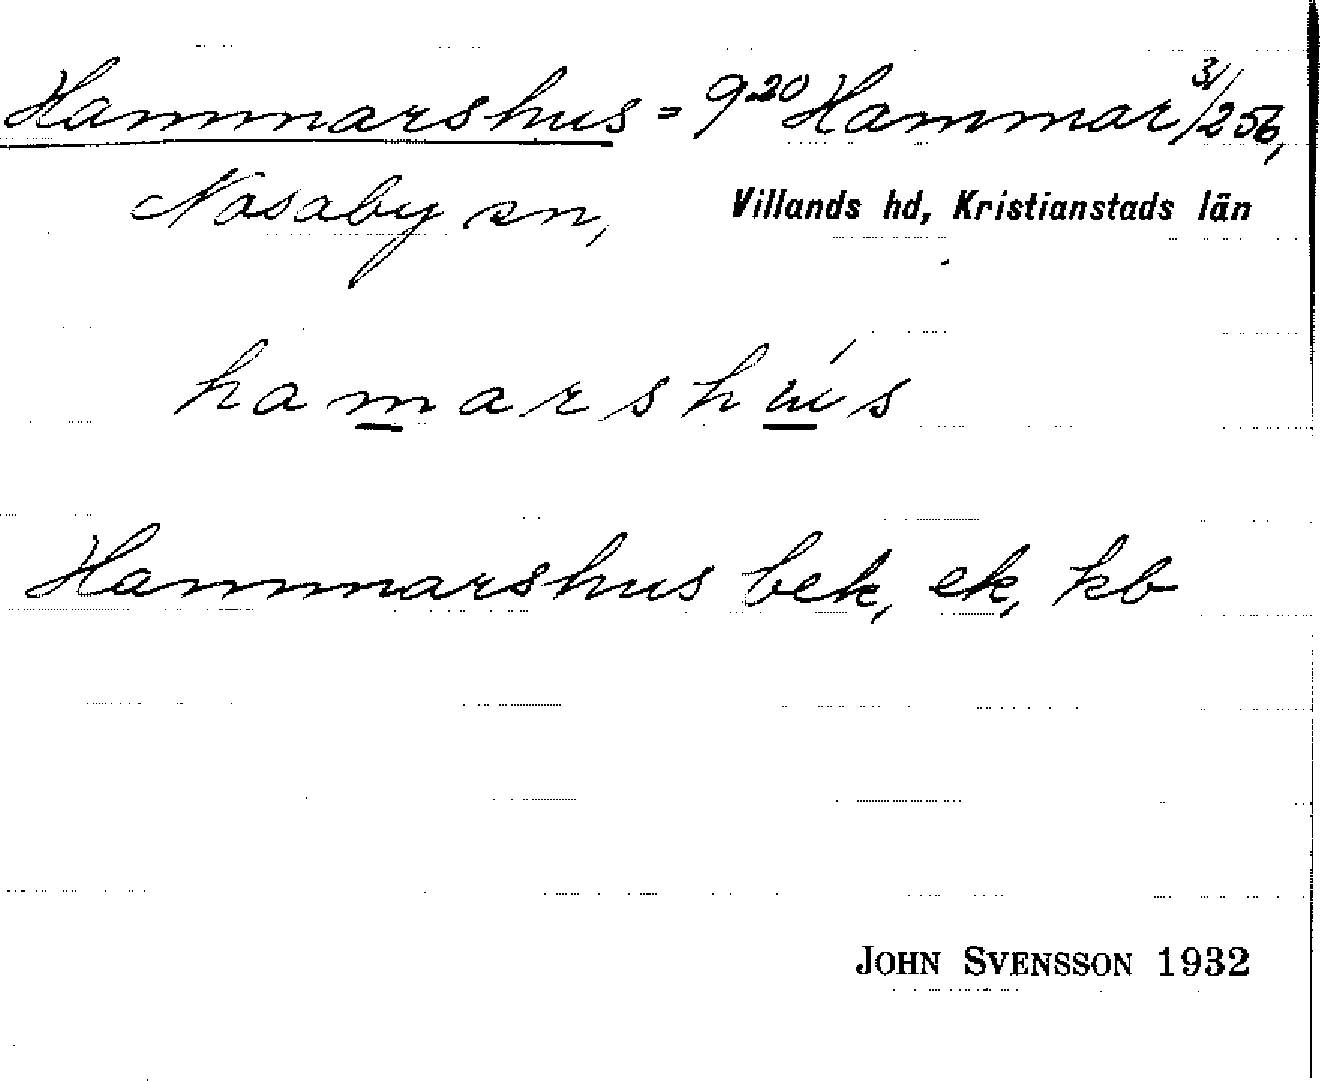 Hammarshus = 9.20 Hammar 31/256,
Nosaby sn, Villands hd, Kristianstads län
hamarshús
Hammarshus bek, ek, kb
JOHN SVENSSON 1932